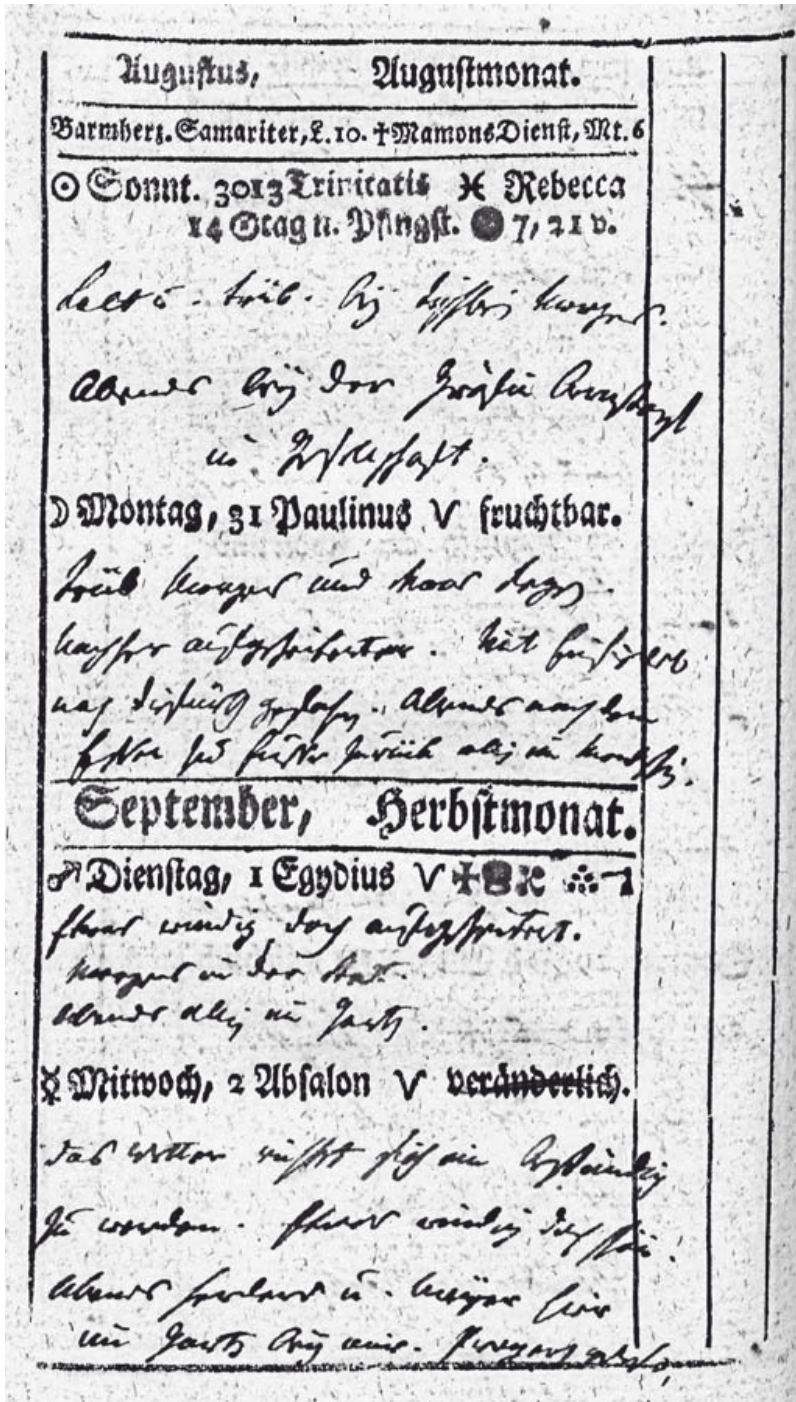 Augustus, Augustmonat.
Barmherz. Samariter, L. 10. † Mamons Dienst, Mt. 6
☉ Sonnt. 30 13 Trinitatis ♓ Rebecca
14 Stag n. Pfingst. ● 7, 21 v.
Kalt u. trüb. bey Morgens.
Abends bey der Gräfin Bernstorf
in Gesellschaft.
☽ Montag, 31 Paulinus ♈ fruchtbar.
trüb Morgens und etwas Regen
nachher aufgeheiterter. Mit
nach Tiefurth gefahren. Abends nach dem
Essen zu Fusse zurück allein im
September, Herbstmonat.
♂ Dienstag, 1 Egydius ♈
Etwas windig doch aufgeheitert.
Morgens in der Stadt.
Abends allein im Garten.
☿ Mittwoch, 2 Absalon ♈ veränderlich.
das Wetter richtet sich ein beständig
zu werden. Etwas windig doch schön.
Abends Herders u. Meyer hier
im Garten bey mir.